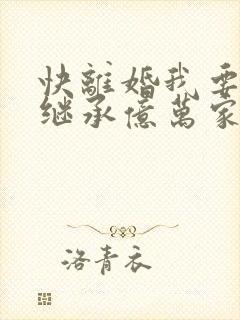 快離婚我要
继承億萬家
洛青衣